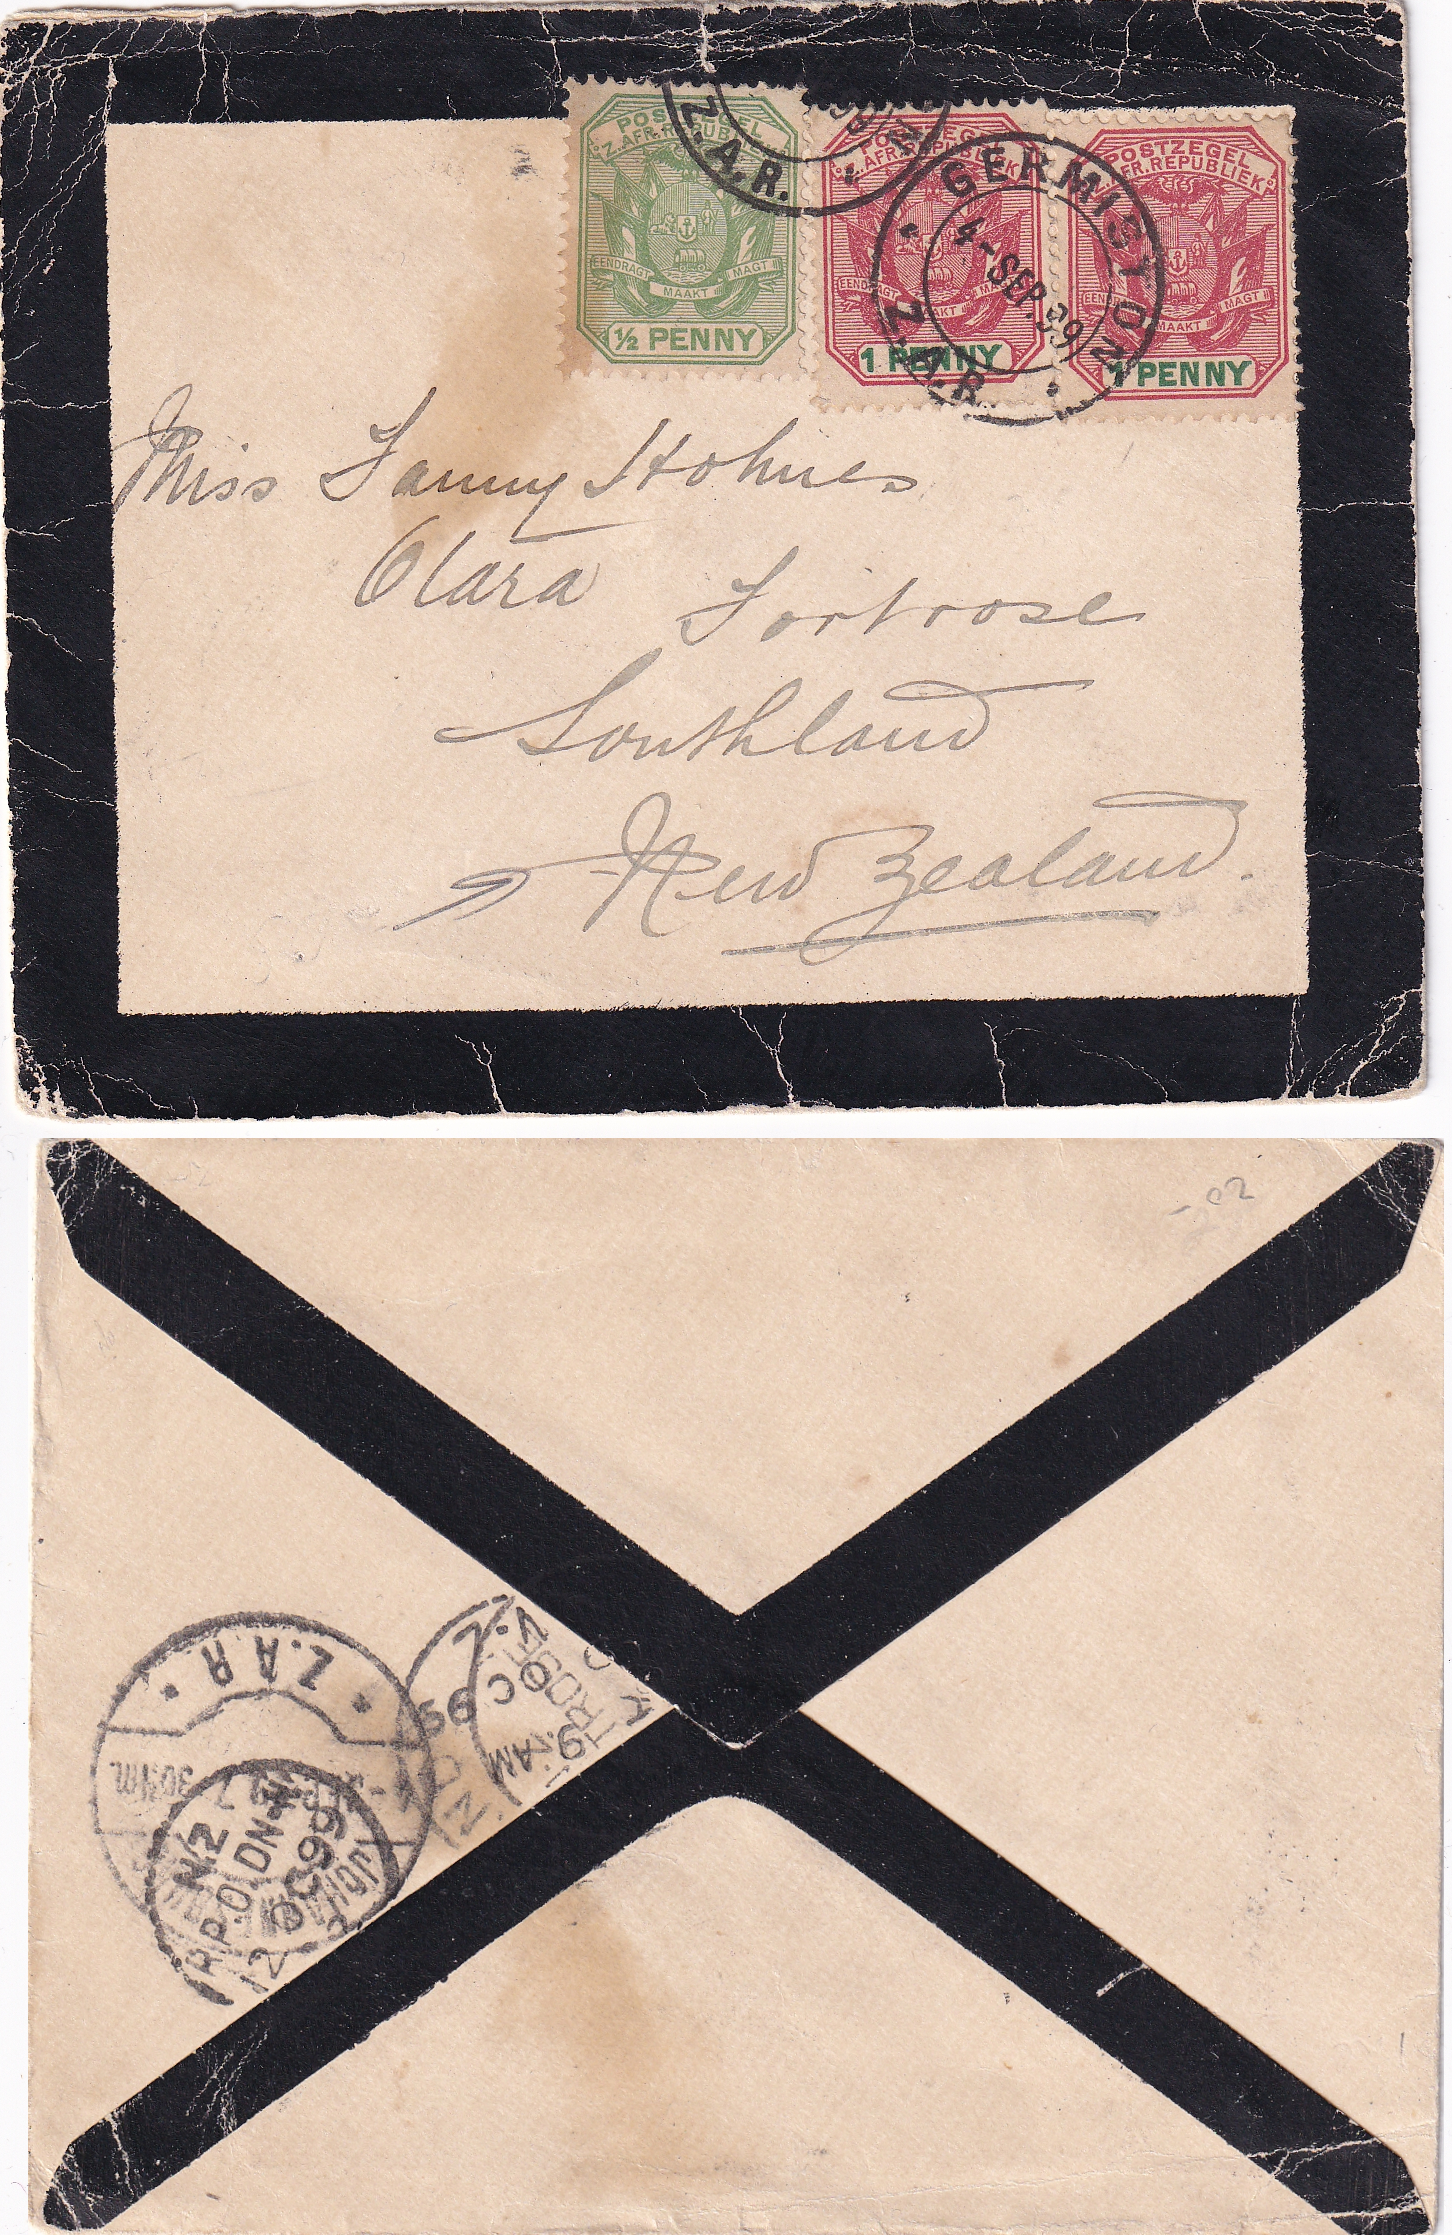 POSTZEGEL
Z.AFR.REPUBLIEK
EENDRAGT MAAKT MAGT
1/2 PENNY
POSTZEGEL
Z.AFR.REPUBLIEK
EENDRAGT MAAKT MAGT
1 PENNY
POSTZEGEL
Z.AFR.REPUBLIEK
EENDRAGT MAAKT MAGT
1 PENNY
Z.A.R.
99
GERMISTON
4-SEP.99
Z.A.R.
Miss Fanny Holmes
Otara Fortrose
Southland
New Zealand.
Z.A.R.
N.Z
R.P.O. DN-N
12 OC 99
2
FORTROSE
N.Z.
OC 99